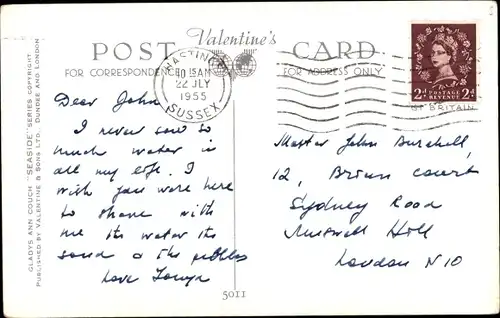 POST Valentine's CARD
FOR CORRESPONDENCE
FOR ADDRESS ONLY
HASTINGS
10 15 AM
22 JLY
1955
SUSSEX
2d POSTAGE REVENUE 2d
GT BRITAIN
Dear John
I never saw so
much water in
all my life. I
wish you were here
to share with
me the water the
sand & the pebbles
love Tonya
Master John Burchell,
12, Court
Sydney Road
Muswell Hill
London N10
GLADYS ANN COUCH "SEASIDE" SERIES COPYRIGHT
PUBLISHED BY VALENTINE & SONS LTD. DUNDEE AND LONDON
5011